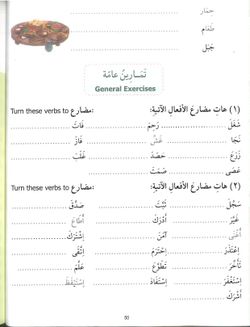 حِمَار
طَعَام
جَبَل
تَمَارِينُ عَامَّة
General Exercises
(١) هاتِ مضارعَ الأفعالِ الآتية: Turn these verbs to مضارع:
شَغَلَ رَحِمَ فَاتَ
نَجَا فَازَ
زَرَعَ حَصَدَ غَلَبَ
عَصَى صَمَتَ
(٢) هاتِ مضارعَ الأفعالِ الآتية: Turn these verbs to مضارع:
سَجَّلَ ثَبَّتَ صَدَّقَ
غَيَّرَ أَدْرَكَ أَطَاعَ
آمَنَ اِشْتَرَكَ
اِعْتَذَرَ اِحْتَرَمَ اِتَّقَى
تَأَخَّرَ تَطَوَّعَ عَلَّمَ
اِسْتَغْفَرَ اِسْتَفَادَ اِسْتَيْقَظَ
أَشْرَكَ